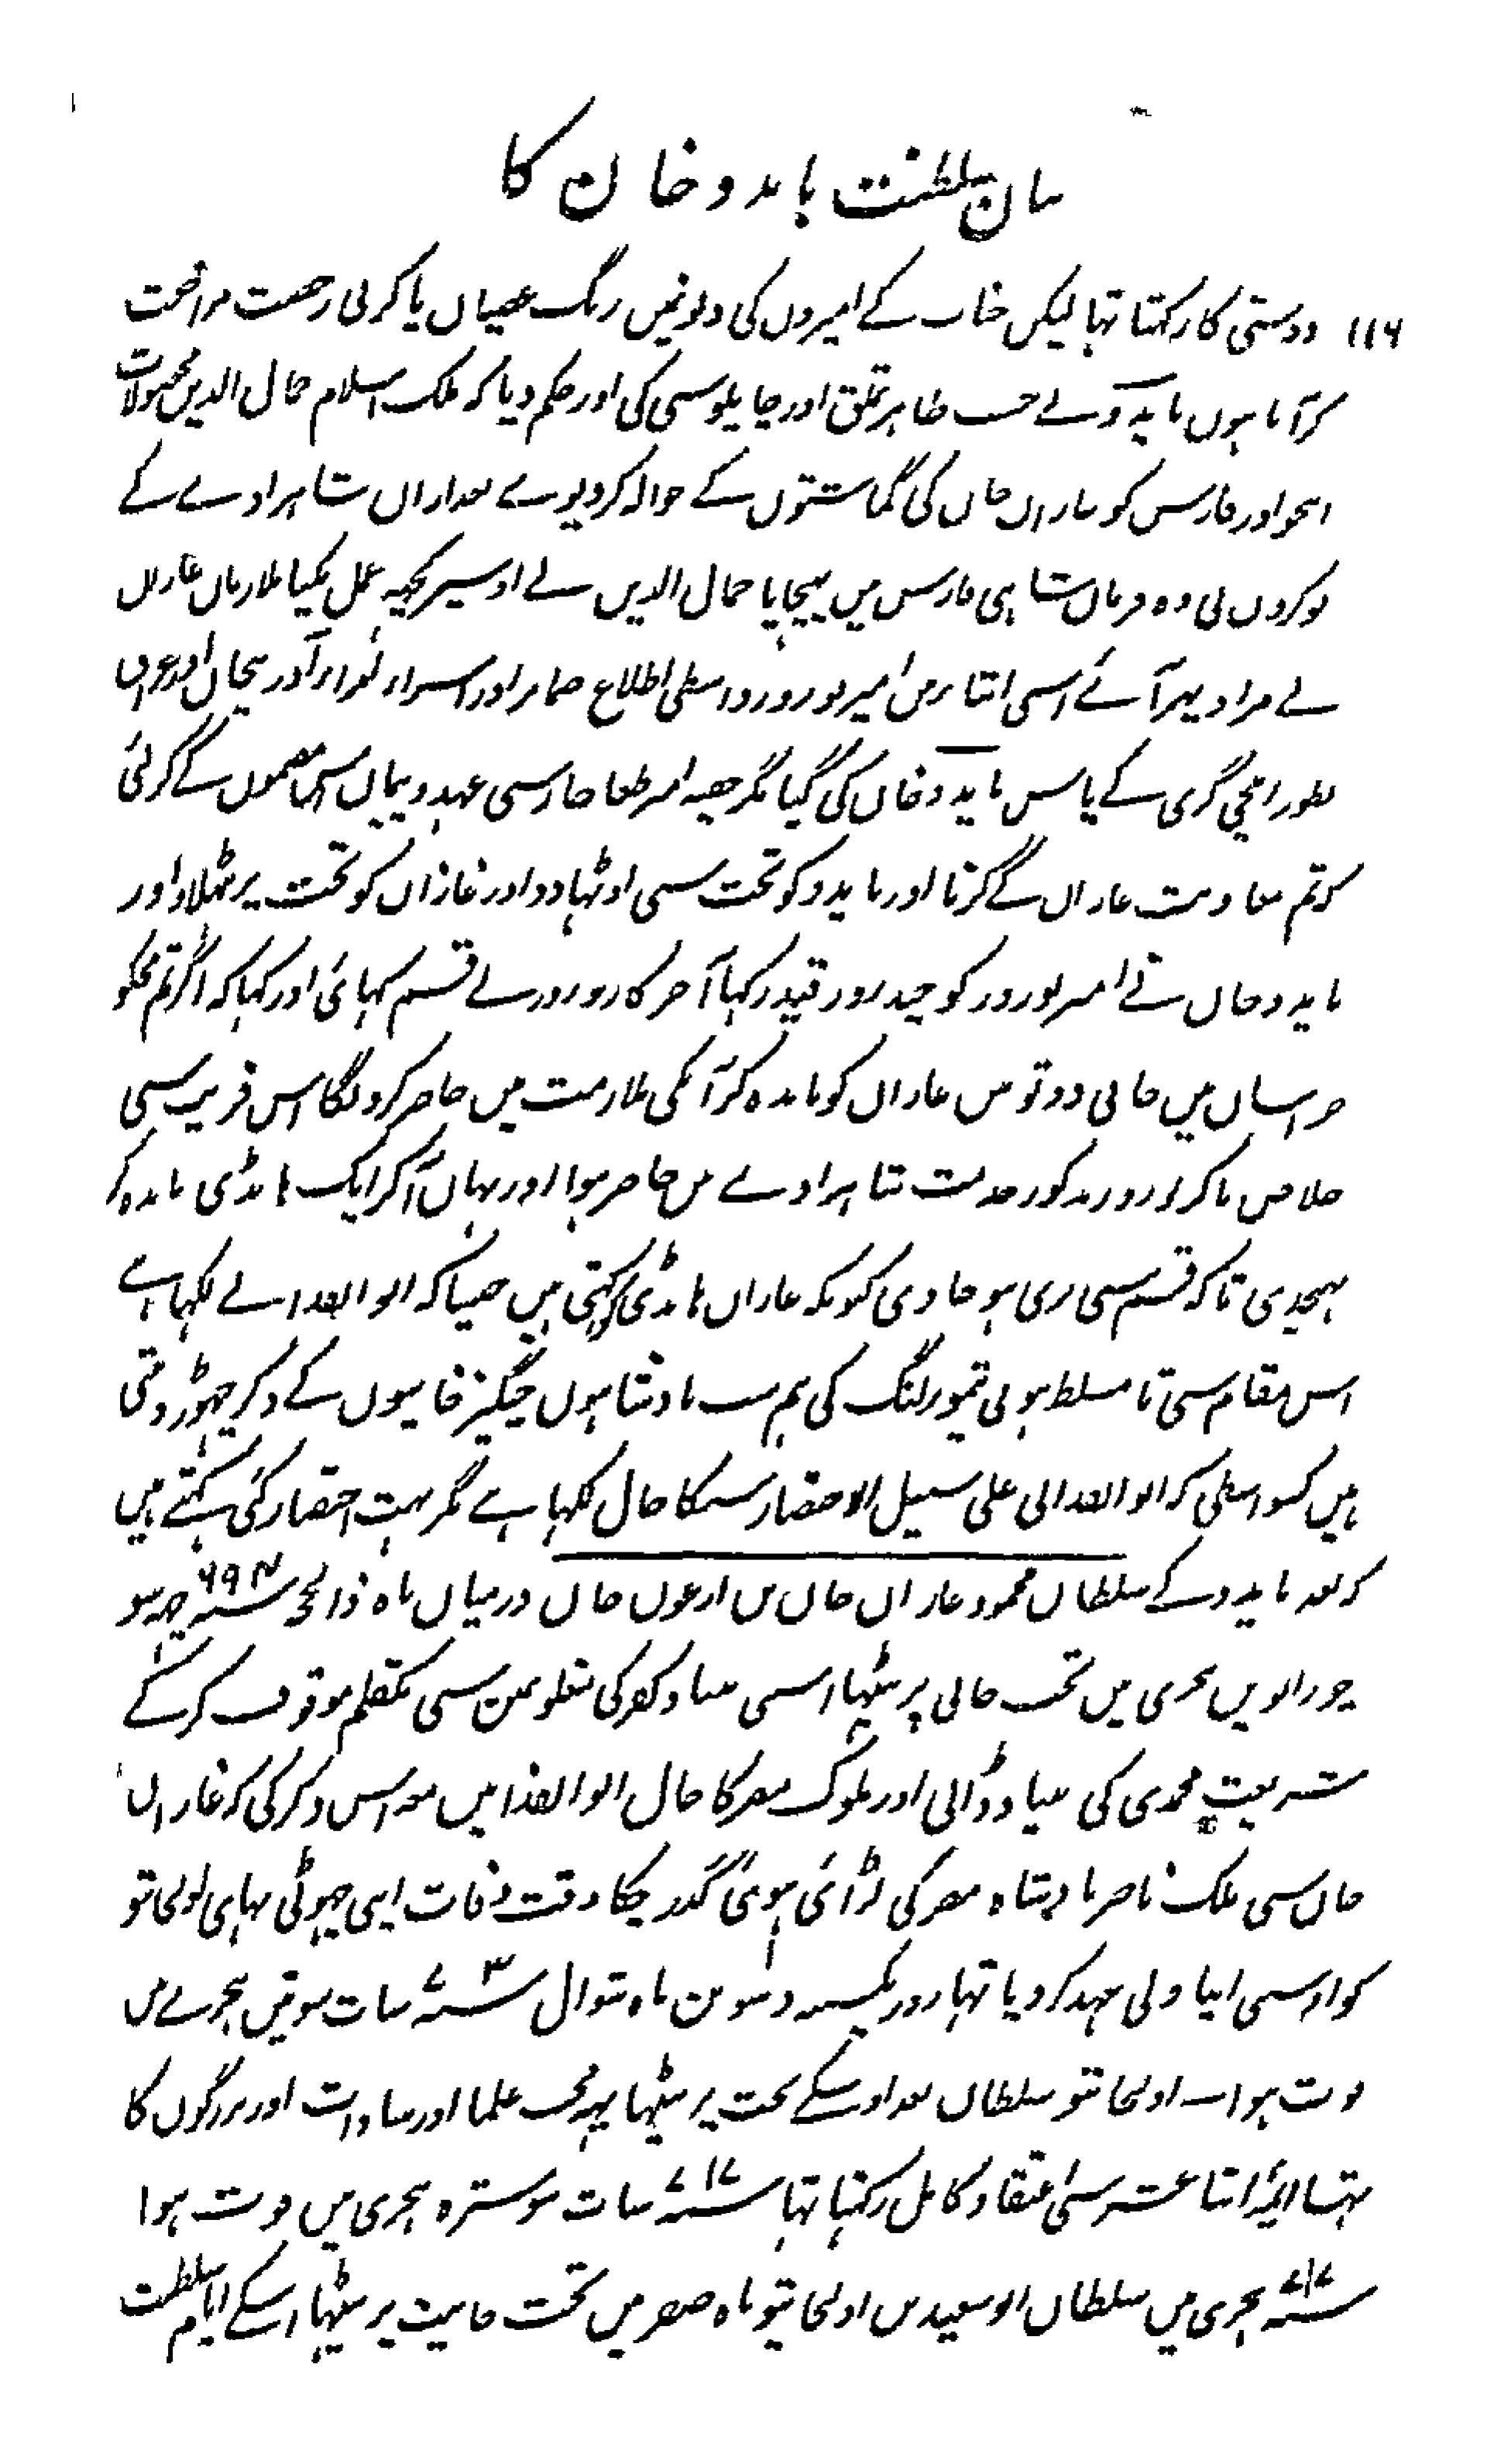 بیان سلطنت بایدو خان کا
۱۱۶ دوستی کا رکہتا تہا لیکن جناب کے امیروں کی دلونمیں رنگ عصیاں پا کر بی رخصت مراجعت
کر آتا ہوں بایدو نے حسب ظاہر تملق اور چاپلوسی کی اور حکم دیا کہ ملک اسلام جمال الدین محصولات
انجو اور فارس کو غازاں خاں کی گماشتوں کے حوالہ کر دیوے بعد ازاں شاہزادے کے
نوکروں نی وہ فرماں شاہی فارس میں پہنچایا جمال الدیں نے اوسپر کچہہ عمل نکیا ملازماں غازاں
بے مراد پہر آئے اسی اثنا میں امیر نوروز واسطی اطلاع ضمایر اور اسرار امراء آذربیجاں اور عراق
بطور ایلچی گری کے پاس بایدو خاں کی گیا مگر خفیہ امیر طغاجار سی عہد و پیماں اس مضمون کے کر لئی
کہ تم معاونت غازاں کے کرنا اور بایدو کو تخت سی اوٹہا دو اور غازاں کو تخت پر بٹہلاو اور
بایدو خاں نے امیر نوروز کو چند روز قید رکہا آخر کار نوروز نے قسم کہائی اور کہا کہ اگر تم مجکو
خراساں میں جانی دو تو میں غازاں کو باندہ کر آپکی ملازمت میں حاضر کرونگا اس فریب سی
خلاص پا کر نوروز مذکور خدمت شاہزادے میں حاضر ہوا اور یہاں آ کر ایک ہانڈی باندہ کر
بہیجدی تاکہ قسم سی بری ہو جاوی کیونکہ غازاں ہانڈی کو کہتی ہیں جیسا کہ ابو الفدا نے لکہا ہے
اس مقام سی تا مسلط ہونی تیمور لنگ کی ہم سب بادشاہوں چنگیز خانیوں کے ذکر چہوڑ دیتی
ہیں کسواسطی کہ ابو الفدا نی علی سبیل الاختصار سبکا حال لکہا ہے مگر بہت اختصار کئی کہتے ہیں
کہ بعد بایدو کے سلطاں محمود غازاں خاں بن ارغوں خاں درمیاں ماہ ذالحجہ ۶۹۴سنہ چہہ سو
چورانویں ہجری میں تخت خانی پر بیٹہا اسی بنیاد کفر کی مغلونمیں سی یکقلم موقوف کر کے
شریعتِ محمدی کی بنیاد ڈالی اور ملوک مصر کا حال ابو الفدا میں معہ اس ذکر کی کہ غازاں
خاں سی ملک ناصر بادشاہ مصر کی لڑائی ہوئی گذر چکا وقت وفات اپنی چہوٹی بہائی اولجایتو
کو اوسی اپنا ولی عہد کر دیا تہا روز یکشنبہ دسویں ماہ شوال ۷۰۳سنہ سات سو تین ہجری میں
فوت ہوا۔ اولجایتو سلطاں بعد اوسکے تخت پر بیٹہا یہہ محب علما اور سادات اور بزرگوں کا
تہا ایمہ اثنا عشر سی اعتقاد کامل رکہتا تہا ۷۱۷سنہ سات سو سترہ ہجری میں فوت ہوا
۷۱۷سنہ ہجری میں سلطاں ابو سعید بن اولجایتو ماہ صفر میں تخت خانیت پر بیٹہا اسکے ایام سلطنت